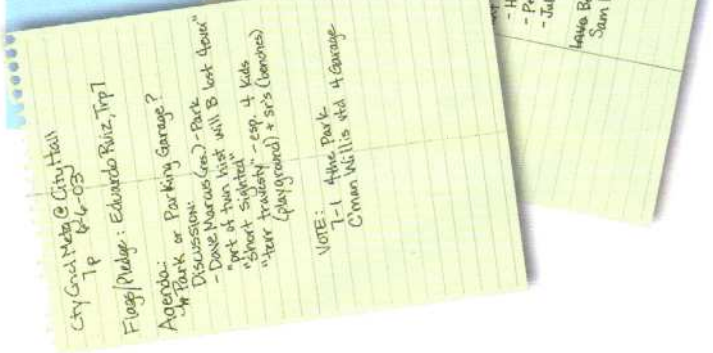 Cty Cncl Metg @ City Hall
7p 6-03
Flags/Pledge: Eduardo Ruiz, Trp 7
Agenda:
Park or Parking Garage?
Discussion:
- Dave Marcus (res.) - Park
"prt of twn hist will B lost 4ever"
"short sighted"
"terr travesty" - esp. 4 kids
(playground) + sr's (benches)
VOTE:
7-1 4 the Park
C'man Willis vtd 4 Garage
- H
- P
- Ju
Sam